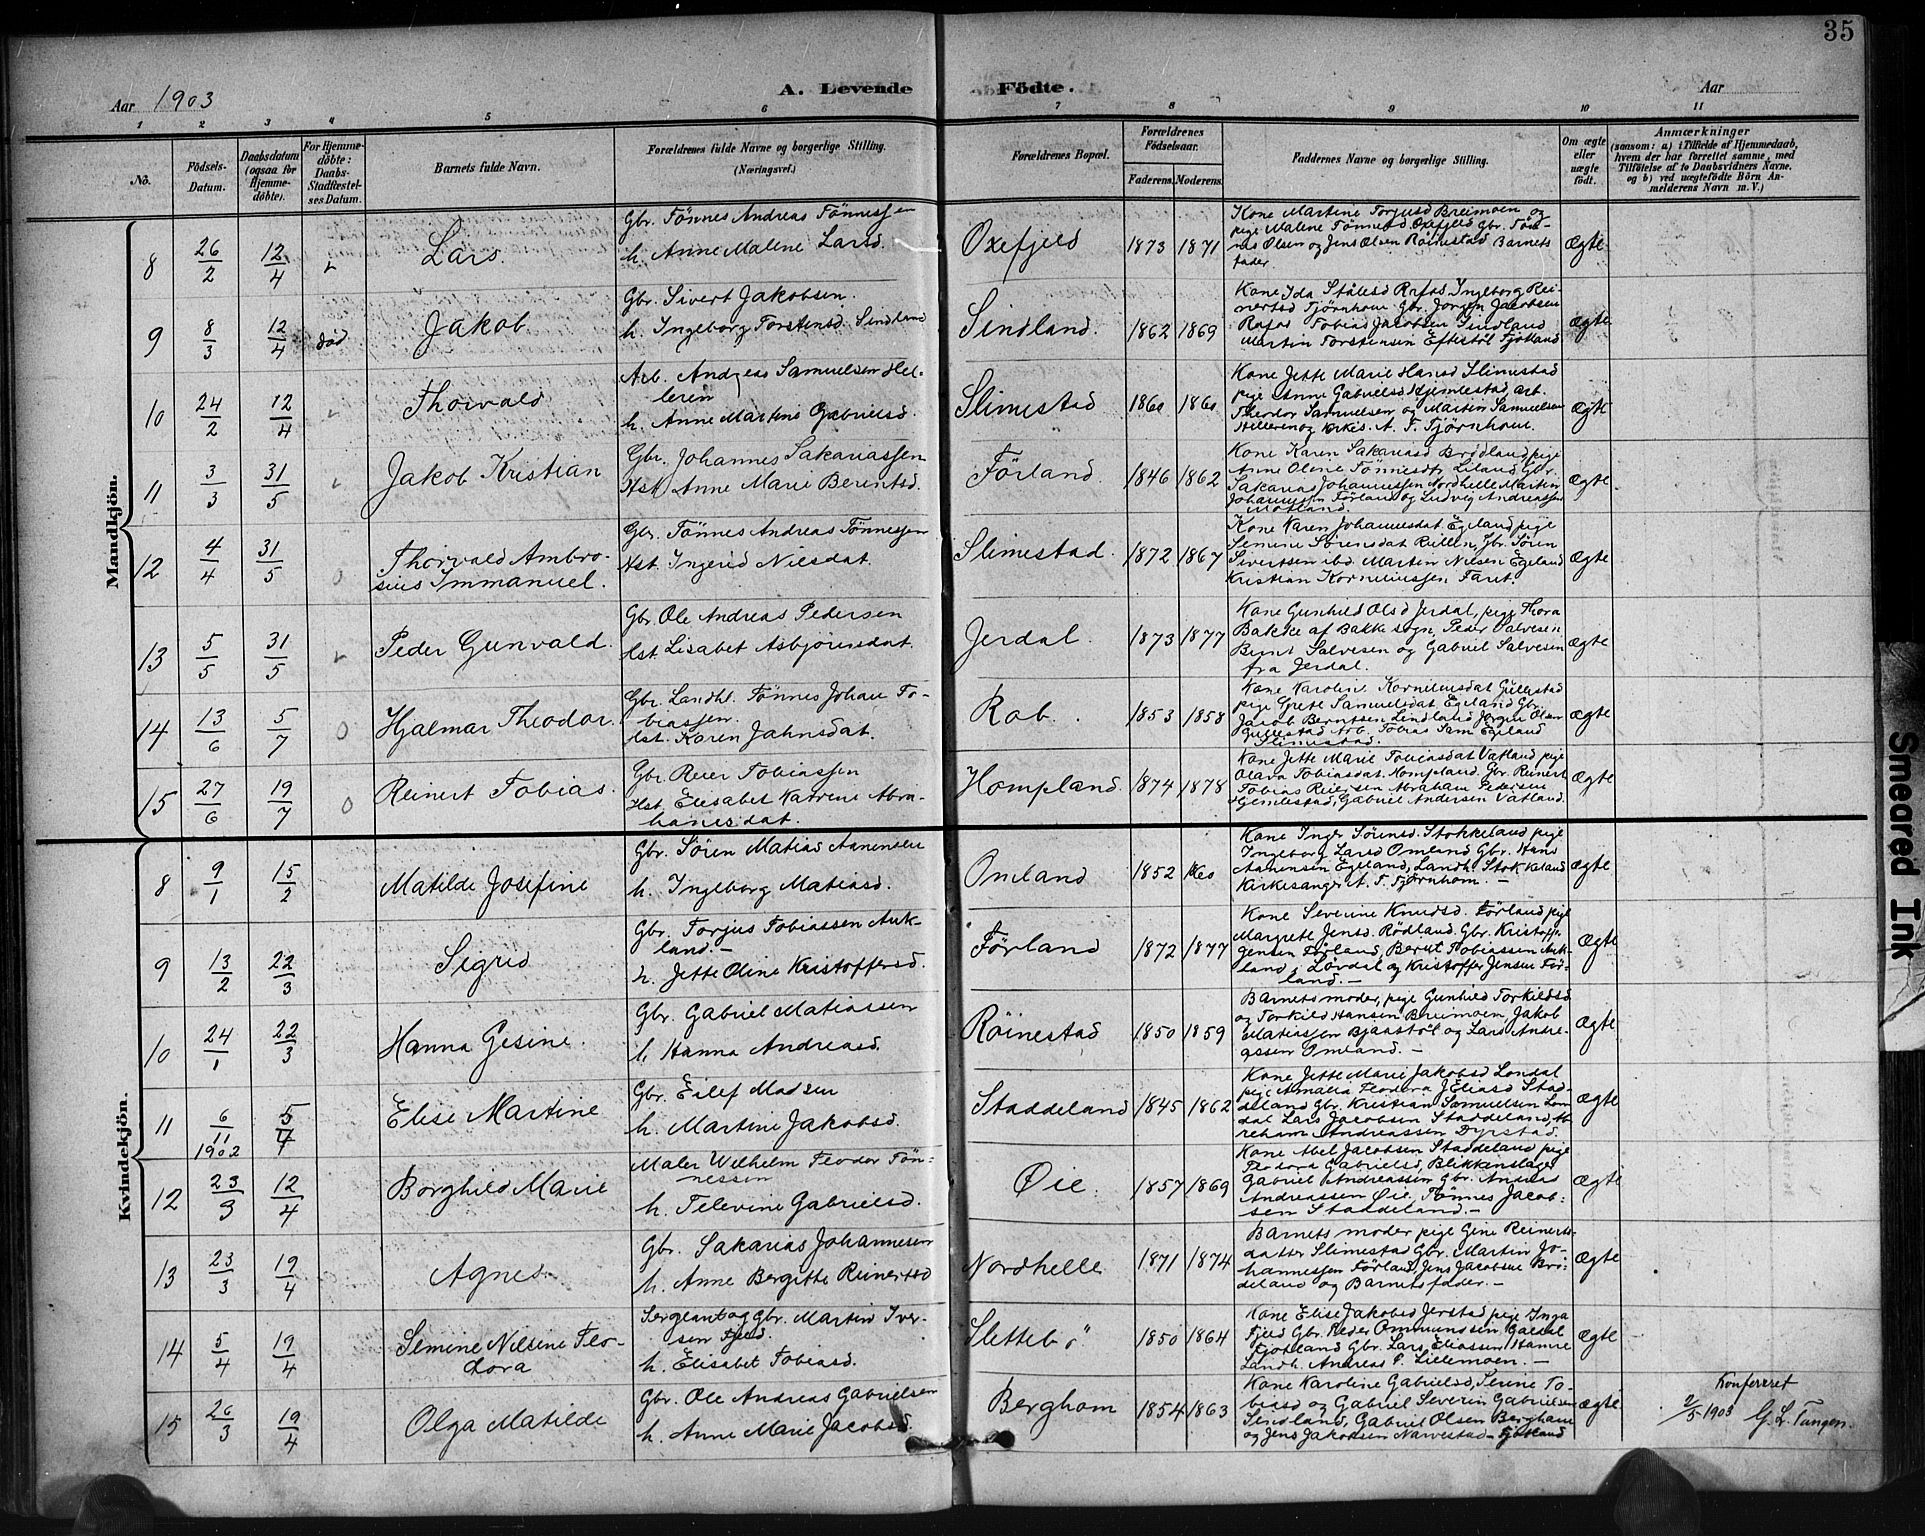 35
Aar 1903
A. Levende Födte.
Aar
1 2 3 4 5 6 7 8 9 10 11
No.
Födsels-Datum.
Daabsdatum (ogsaa for Hjemmedöbte).
For Hjemmedöbte: Daabs-Stadfæstelses Datum.
Barnets fulde Navn.
Forældrenes fulde Navne og borgerlige Stilling.
(Næringsvei.)
Forældrenes Bopæl.
Forældrenes Födselsaar.
Faderens. Moderens.
Faddernes Navne og borgerlige Stilling.
Om ægte eller uægte födt.
Anmærkninger
(saasom: a) i Tilfælde af Hjemmedaab, hvem der har forrettet samme, med Tilföielse af to Daabsvidners Navne, og b) ved uægtefödte Börn Anmelderens Navn m. V.)
Mandkjön.
8 26/2 12/4 Lars.
Gbr. Tönnes Andreas Tönnessen
h. Anne Malene Larsd.
Oxefjeld 1873 1871
Kone Martine Torjusd Breimoen og
pige Malene Tönnesd. Oxefjeld Gbr. Tön-
nes Olsen og Jens Olsen Röinestad Barnets
fader.
Ægte
9 8/3 12/4 död Jakob
Gbr. Sivert Jakobsen.
h. Ingeborg Torstensd. Sindland
Sindland. 1862 1869
Kone Ida Stålesd Rafos, Ingeborg Rei-
nertsd Tjörnhom Gbr. Jörgen Jacobsen
Rafos Tobias Jacobsen Sindland
Martin Torstensen Eftestöl Fjotland
Ægte
10 24/2 12/4 Thorvald
Arb. Andreas Samuelsen Hel-
leren
h. Anne Martine Gabrielsd.
Slimestad 1860 1860
Kone Jette Marie Hansd Slimestad
pige Anne Gabrielsd Hjemlestad arb.
Theodor Samuelsen og Martin Samuelsen
Helleren og Kirkes. A. T. Tjörnhom.
Ægte
11 3/3 31/5 Jakob Kristian
Gbr. Johannes Sakariassen
Hst Anne Marie Berentsd.
Förland. 1846 1862
Kone Karen Sakariasd Brödland pige
Anne Olene Tönnesdt. Liland Gbr.
Sakarias Johannessen Nordhelle Martin
Johannessen Förland og Ludvig Andreassen
Motland.
Ægte
12 4/4 31/5 Thorvald Ambro-
sius Immanuel.
Gbr. Tönnes Andreas Tönnessen
Hst. Ingerid Nilsdat.
Slimestad. 1872 1867
Kone Karen Johannesdat. Egeland pige
Semine Sörensdat Gbr. Sören
Sivertsen ibd. Martin Nilsen Egeland
Kristian Korneliussen Faret.
Ægte
13 5/5 31/5 Peder Gunvald.
Gbr. Ole Andreas Pedersen
Hst. Lisabet Asbjörnsdat.
Jerdal. 1873 1877
Kone Gunhild Olsd Jerdal, pige Thora
Bakke af Bakke sogn, Peder Salvesen
Bernt Salvesen og Gabriel Salvesen
fra Jerdal.
Ægte
14 13/6 5/7 0 Hjalmar Theodor.
Gbr. Landhl. Tönnes Johan To-
biassen.
Hst. Karen Jahnsdat.
Rob. 1853 1858
Kone Karolin. Korneliusdat Gullestad
pige Grete Samuelsdat Egeland Gbr.
Jacob Berntsen Lindland Jörgen Olsen
Gullestad Arb. Tobias Sam Egeland
Slimestad.
Ægte
15 27/6 19/7 0 Reinert Tobias.
Gbr. Reier Tobiassen
Hst. Elisabet Katrine Abra-
hamsdat.
Hompland. 1874 1878
Kone Jette Marie Tobiasdat Vatland pige
Olava Tobiasdat. Hompland. Gbr. Reinert
Tobias Reiersen Abraham Pedersen
Hjemlestad, Gabriel Andersen Vatland.
Ægte
Kvindekjön.
8 9/1 15/2 Matilde Josefine
Gbr. Sören Matias Aanensen
h. Ingeborg Matiasd.
Omland 1852
Kone Inger Sörensd. Stokkeland pige
Ingeborg Larsd Omland Gbr. Hans
Aanensen Egeland, Landh. Stokkeland
Kirkesanger A. T. Tjörnhom. —
Ægte
9 13/2 22/3 Sigrid
Gbr. Torjus Tobiassen Auk-
land. —
h. Jette Oline Kristoffersd.
Förland 1872 1877
Kone Severine Knudsd. Förland pige
Margrete Jensd. Rödland. Gbr. Kristoff.
Jensen Förland, Bernt Tobiassen Auk-
land, Lövdal og Kristoffer Jensen För-
land. —
Ægte
10 24/1 22/3 Hanna Gesine.
Gbr. Gabriel Matiassen
h. Hanna Andreasd.
Röinestad 1850 1859
Barnets moder, pige Gunhild Torkildsd
og Torkild Hansen Breimoen, Jakob
Matiassen Bjaastöl og Lars Andre-
assen Omland. —
Ægte
11 6/11 1902 5/4 Elise Martine
Gbr. Eilef Madsen
h. Martine Jakobsd.
Staddeland 1845 1862
Kone Jette Marie Jakobsd Londal
pige Amalia Teodora J Eliasd Stad-
deland Gbr. Kristian Samuelsen Lon-
dal Lars Jacobsen Staddeland, Ab-
reham Andreassen Dyrstad.
Ægte
12 23/3 12/4 Borghild Marie
Maler Wilhelm Teodor Tön-
nessen
h. Televine Gabrielsd.
Öie. 1857 1869
Kone Abel Jacobsen Staddeland pige
Teodora Gabrielsd, Blikkenslager
Gabriel Andreassen Gbr. Andreas
Andreassen Öie, Tönnes Jacob-
sen Staddeland. —
Ægte
13 23/3 19/4 Agnes.
Gbr. Sakarias Johannesen
h. Anne Bergitte Reinertsd
Nordhelle 1871 1874
Barnets moder pige Gine Reinerts-
datter Slimestad Gbr. Martin Jo-
hannessen Förland, Jens Jacobsen Brö-
deland og Barnets fader. —
Ægte
14 5/4 19/4 Semine Nilsine Teo-
dora
Sergeant og Gbr. Martin Iver-
sen Fjeld.
h. Elisabet Tobiasd.
Slettebö 1850 1864
Kone Elise Jakobsd Jerstad, pige Inga
Fjeld Gbr. Peder Ommundsen Gaedal
Fjotland Gbr. Lars Eliassen Hamre
Landh. Andreas P. Lillemoen. —
Ægte
15 26/3 19/4 Olga Matilde
Gbr. Ole Andreas Gabrielsen
h. Anne Marie Jacobsd
Berghom 1854 1863
Kone Karoline Gabrielsd, Serine To-
biasd og Gabriel Severin Gabrielsen
Sindland, Gabriel Olsen Berghom
og Jens Jakobsen Narvestad — Fjotland
Ægte
Konfereret
2/5 1903 G. L. Tangen.
Smeared Ink